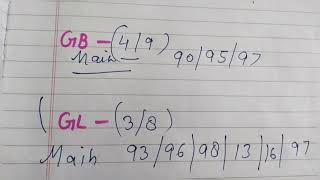 GB - (4/9)
Main 90/95/97
( GL - (3/8)
Main 93/96/98/13/16/97